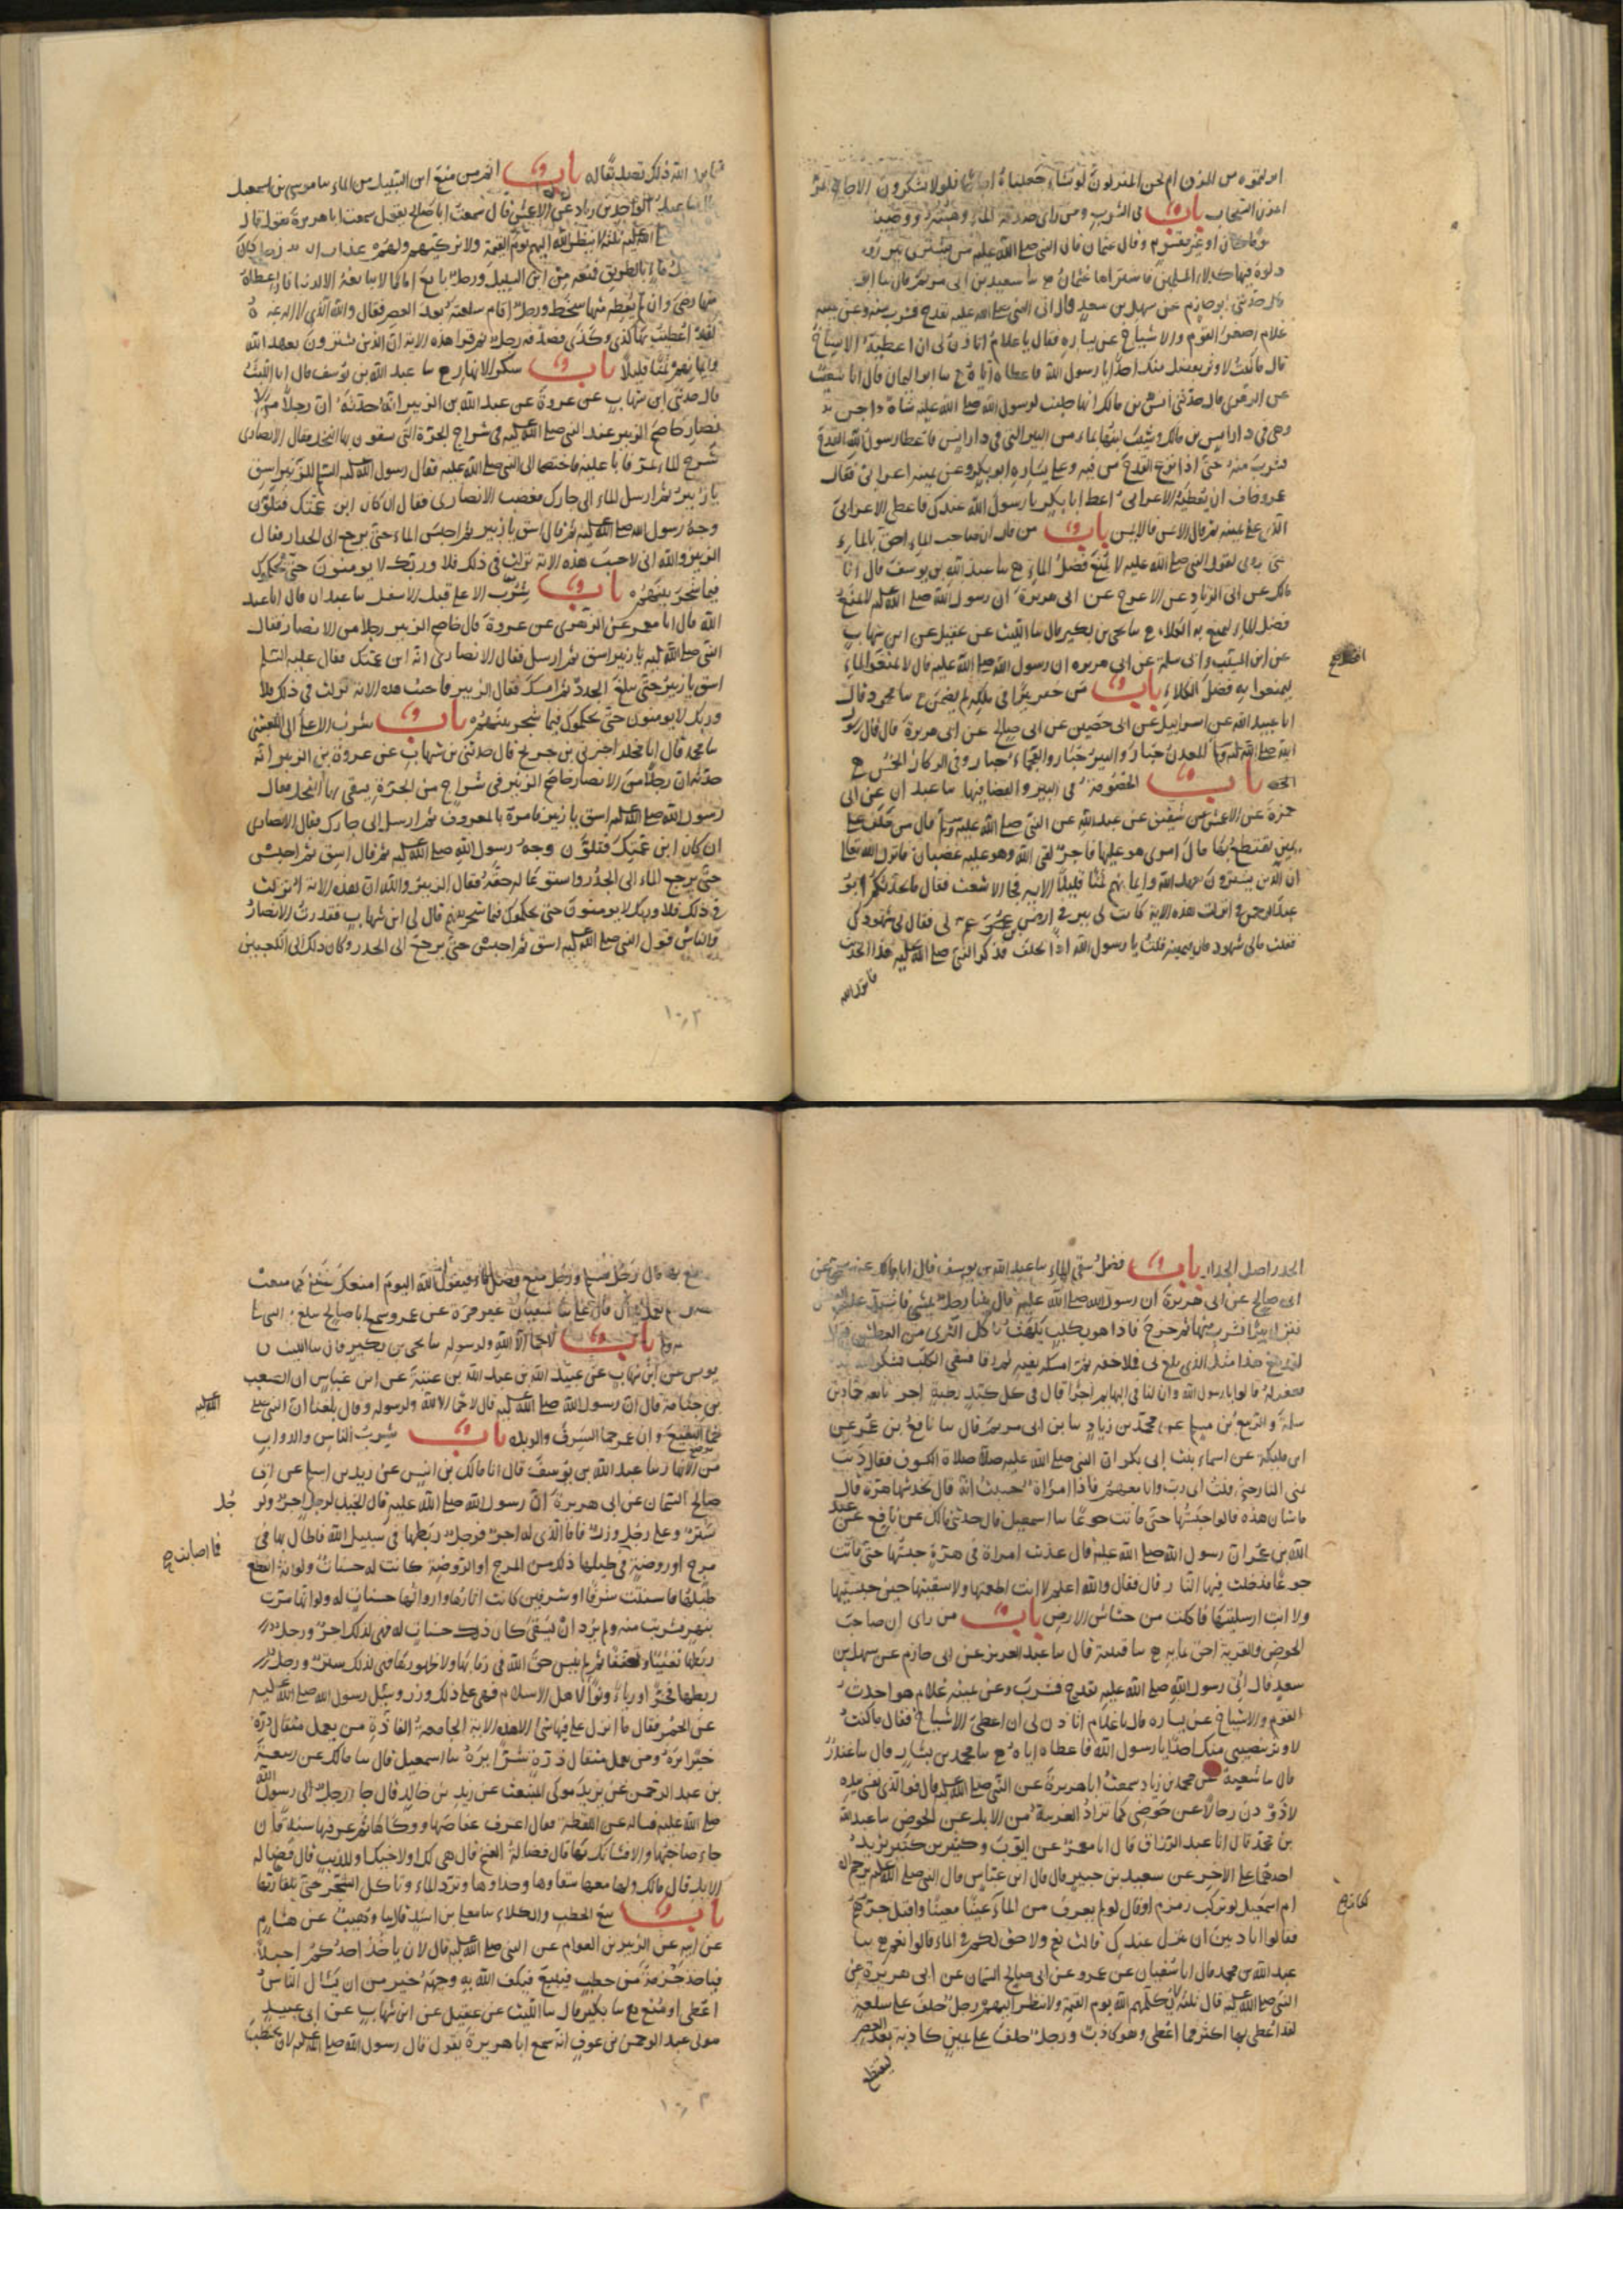 انزلتموه من المزن ام نحن المنزلون لو نشاء جعلناه اجاجا فلولا تشكرون الاجاج المر
المزن السحاب باب في الشرب ومن راى صدقة الماء وهبته ووصيته
مقسوما كان او غير مقسوم وقال عثمان قال النبي صلى الله عليه من يشتري بير رومه
دلوه فيها كدلاء المسلمين فاشتراها عثمان ح سا سعيد بن ابى مريم قال سا ابو
قال حدثنى ابو حازم عن سهل بن سعد قال اتى النبى صلى الله عليه بقدح فشرب منه وعن يمينه
غلام اصغر القوم والاشياخ عن يساره فقال يا غلام اتاذن لى ان اعطيه الاشياخ
قال ما كنت لاوثر بفضل منك احدا يا رسول الله فاعطاه اياه ح سا ابو اليمان قال انا شعيب
عن الزهرى قال حدثنى انس بن مالك انها حلبت لرسول الله صلى الله عليه شاة داجن
وهى فى دار انس بن مالك وشيب لبنها بماء من البير التى فى دار انس فاعطا رسول الله القدح
فشرب منه حتى اذا نزع القدح من فيه وعلى يساره ابو بكر وعن يمينه اعرابى فقال
عمر وخاف ان يعطيه الاعرابى اعط ابا بكر يا رسول الله عندك فاعطى الاعرابى
الذى على يمينه ثم قال الايمن فالايمن باب من قال ان صاحب الماء احق بالماء
حتى يروى لقول النبى صلى الله عليه لا يمنع فضل الماء ح سا عبد الله بن يوسف قال انا
مالك عن ابى الزناد عن الاعرج عن ابى هريرة ان رسول الله صلى الله عليه لا يمنع
فضل الماء ليمنع به الكلاء ح سا يحيى بن بكير قال سا الليث عن عقيل عن ابن شهاب
عن ابن المسيب وابى سلمة عن ابى هريره ان رسول الله صلى الله عليه قال لا تمنعوا الماء
ليمنعوا به فضل الكلاء باب من حفر بيرا فى ملكه لم يضمن ح سا محمود قال
انا عبيد الله عن اسرائيل عن ابى حصين عن ابى صالح عن ابى هريرة قال قال رسول
الله صلى الله عليه وسلم المعدن جبار والبير جبار والعجماء جبار وفى الركاز الخمس ح
باب الخصومة فى البير والقضا فيها سا عبدان عن ابى
حمزة عن الاعمش عن شقيق عن عبد الله عن النبى صلى الله عليه وسلم قال من حلف على
يمين يقتطع بها مال امرى هو عليها فاجر لقى الله وهو عليه غضبان فانزل الله تعالى
ان الذين يشترون بعهد الله وايمانهم ثمنا قليلا الاية فجا الاشعث فقال ما حدثكم ابو
عبد الرحمن فى انزلت هذه الاية كانت لى بير فى ارض ابن عم لى فقال لى شهودك
فقلت مالى شهود قال يمينه قلت يا رسول الله اذا يحلف فذكر النبى صلى الله عليه هذا الحديث
فانزل الله
فانزل الله ذلك تصديقا له باب اثم من منع ابن السبيل من الماء سا موسى بن اسمعيل
سا عبد الواحد بن زياد عن الاعمش قال سمعت ابا صالح يقول سمعت ابا هريرة يقول قال
صلى الله عليه ثلثة لا ينظر الله اليهم يوم القيمة ولا يزكيهم ولهم عذاب اليم رجل كان
له فضل ماء بالطريق فمنعه من ابن السبيل ورجل بايع اماما لا يبايعه الا لدنيا فان اعطاه
منها رضى وان لم يعطه منها سخط ورجل اقام سلعته بعد العصر فقال والله الذى لا اله غيره
لقد اعطيت بها كذى وكذى فصدقه رجل ثم قرا هذه الاية ان الذين يشترون بعهد الله
وايمانهم ثمنا قليلا باب سكر الانهار ح سا عبد الله بن يوسف قال انا الليث
قال حدثنى ابن شهاب عن عروة عن عبد الله بن الزبير انه حدثه ان رجلا من الا
نصار خاصم الزبير عند النبى صلى الله عليه فى شراج الحرة التى يسقون بها النخل فقال الانصارى
سرح الماء يمر فابا عليه فاختصما الى النبى صلى الله عليه فقال رسول الله صلى الله عليه وسلم للزبير اسق
يا زبير ثم ارسل الماء الى جارك فغضب الانصارى فقال ان كان ابن عمتك فتلون
وجه رسول الله صلى الله عليه ثم قال اسق يا زبير ثم احبس الماء حتى يرجع الى الجدر فقال
الزبير والله انى لاحسب هذه الاية نزلت فى ذلك فلا وربك لا يومنون حتى يحكموك
فيما شجر بينهم باب شرب الاعلى قبل الاسفل سا عبدان قال انا عبد
الله قال انا معمر عن الزهرى عن عروة قال خاصم الزبير رجلا من الانصار فقال
النبى صلى الله عليه يا زبير اسق ثم ارسل فقال الانصارى انه ابن عمتك فقال عليه السلم
اسق يا زبير حتى يبلغ الجدر ثم امسك فقال الزبير فاحسب هذه الاية نزلت فى ذلك فلا
وربك لا يومنون حتى يحكموك فيما شجر بينهم باب شرب الاعلى الى الكعبين
سا محمد قال انا مخلد اخبرنى بن جريج قال حدثنى بن شهاب عن عروة بن الزبير انه
حدثه ان رجلا من الانصار خاصم الزبير فى شراج من الحرة يسقى بها النخل فقال
رسول الله صلى الله عليه اسق يا زبير فامره بالمعروف ثم ارسل الى جارك فقال الانصارى
ان كان ابن عمتك فتلون وجه رسول الله صلى الله عليه ثم قال اسق ثم احبس
حتى يرجع الماء الى الجدر واستوعا له حقه فقال الزبير والله ان هذه الاية انزلت
فى ذلك فلا وربك لا يومنون حتى يحكموك فيما شجر بينهم قال لى ابن شهاب فقدرت الانصار
والناس قول النبى صلى الله عليه اسق ثم احبس حتى يرجع الى الجدر وكان ذلك الى الكعبين
١٠٢
الجدر اصل الجدار باب فضل سقى الماء سا عبد الله بن يوسف قال انا مالك عن سمى عن
ابى صالح عن ابى هريرة ان رسول الله صلى الله عليه قال بينا رجل يمشى فاشتد عليه العطش
فنزل بيرا فشرب منها ثم خرج فاذا هو بكلب يلهث ياكل الثرى من العطش فقال
لقد بلغ هذا مثل الذى بلغ بى فملا خفه ثم امسكه بفيه ثم رقا فسقى الكلب فشكر الله له
فغفر له قالوا يا رسول الله وان لنا فى البهايم اجرا قال فى كل كبد رطبة اجر تابعه حماد بن
سلمة والربيع بن مسلم عن محمد بن زياد سا بن ابى مريم قال سا نافع بن عمر عن
ابن مليكة عن اسماء بنت ابى بكر ان النبى صلى الله عليه صلا صلاة الكسوف فقال دنت
منى النار حتى قلت اى رب وانا معهم فاذا امراة حسبت انه قال تخدشها هرة قال
ما شان هذه قالوا حبستها حتى ماتت جوعا سا اسمعيل قال حدثنى مالك عن نافع عن عبد
الله بن عمر ان رسول الله صلى الله عليه قال عذبت امراة فى هرة حبستها حتى ماتت
جوعا فدخلت فيها النار قال فقال والله اعلم لا انت اطعمتها ولا سقيتها حين حبستيها
ولا انت ارسلتيها فاكلت من خشاش الارض باب من راى ان صاحب
الحوض والقربة احق بمايه ح سا قتيبة قال سا عبد العزيز عن ابى حازم عن سهل بن
سعد قال اتى رسول الله صلى الله عليه بقدح فشرب وعن يمينه غلام هو احدث
القوم والاشياخ عن يساره قال يا غلام اتاذن لى ان اعطى الاشياخ فقال ما كنت
لاوثر بنصيبى منك احدا يا رسول الله فاعطاه اياه ح سا محمد بن بشار قال سا غندر
قال سا شعبة عن محمد بن زياد سمعت ابا هريرة عن النبى صلى الله عليه قال والذى نفسى بيده
لاذودن رجالا عن حوضى كما تذاد الغريبة من الابل عن الحوض سا عبد الله
بن محمد قال انا عبد الرزاق قال انا معمر عن ايوب وكثير بن كثير يزيد
احدهما على الاخر عن سعيد بن جبير قال قال ابن عباس قال النبى صلى الله عليه يرحم الله
ام اسمعيل لو تركت زمزم او قال لو لم تغرف من الماء كانت عينا معينا واقبل جرهم
فقالوا اتاذنين ان ننزل عندك قالت نعم ولا حق لكم فى الماء قالوا نعم ح سا
عبد الله بن محمد قال انا سفيان عن عمرو عن ابى صالح السمان عن ابى هريرة عن
النبى صلى الله عليه قال ثلثة لا يكلمهم الله يوم القيمة ولا ينظر اليهم رجل حلف على سلعة
لقد اعطى بها اكثر مما اعطى وهو كاذب ورجل حلف على يمين كاذبة بعد العصر
ليقتطع
بها مال رجل مسلم ورجل منع فضل ماء فيقول الله اليوم امنعك فضلى كما منعت
سا سفيان غير مرة عن عمرو سمع ابا صالح يبلغ به النبى
باب لا حما الا لله ولرسوله سا يحيى بن بكير قال سا الليث عن
يونس عن ابن شهاب عن عبيد الله بن عبد الله بن عتبة عن ابن عباس ان الصعب
بن جثامة قال ان رسول الله صلى الله عليه قال لا حما الا لله ولرسوله وقال بلغنا ان النبى صلى الله عليه
حما النقيع وان عمر حما السرف والربذة باب شرب الناس والدواب
من الانهار سا عبد الله بن يوسف قال انا مالك بن انس عن زيد بن اسلم عن ابى
صالح السمان عن ابى هريرة ان رسول الله صلى الله عليه قال الخيل لرجل اجر ولرجل
ستر وعلى رجل وزر فاما الذى له اجر فرجل ربطها فى سبيل الله فاطال بها فى
مرج او روضة فما اصابت فى طيلها ذلك من المرج او الروضة كانت له حسنات ولو انه انقطع
طيلها فاستنت شرفا او شرفين كانت اثارها وارواثها حسنات له ولو انها مرت
بنهر فشربت منه ولم يرد ان يسقى كان ذلك حسنات له فهى لذلك اجر ورجل
ربطها تغنيا وتعففا ثم لم ينس حق الله فى رقابها ولا ظهورها فهى لذلك ستر ورجل
ربطها فخرا ورياء ونوا لاهل الاسلام فهى على ذلك وزر وسئل رسول الله صلى الله عليه
عن الحمر فقال ما انزل على فيها شئ الا هذه الاية الجامعة الفاذة من يعمل مثقال ذرة
خيرا يره ومن يعمل مثقال ذرة شرا يره سا اسمعيل قال سا مالك عن ربيعة
بن عبد الرحمن عن يزيد مولى المنبعث عن زيد بن خالد قال جا رجل الى رسول الله
صلى الله عليه فساله عن اللقطة فقال اعرف عفاصها ووكاها ثم عرفها سنة فان
جاء صاحبها والا فشانك بها قال فضالة الغنم قال هى لك او لاخيك او للذيب قال فضالة
الابل قال مالك ولها معها سقاوها وحذاوها وترد الماء وتاكل الشجر حتى يلقاها ربها
باب بيع الحطب والكلاء سا معلى بن اسد قال سا وهيب عن هشام
عن ابيه عن الزبير بن العوام عن النبى صلى الله عليه قال لان ياخذ احدكم احبلا
فياخذ حزمة من حطب فيبيع فيكف الله به وجهه خير من ان يسال الناس
اعطى او منع ح سا بكير قال سا الليث عن عقيل عن ابن شهاب عن ابى عبيد
مولى عبد الرحمن بن عوف انه سمع ابا هريرة يقول قال رسول الله صلى الله عليه لان يحتطب
١٠٣